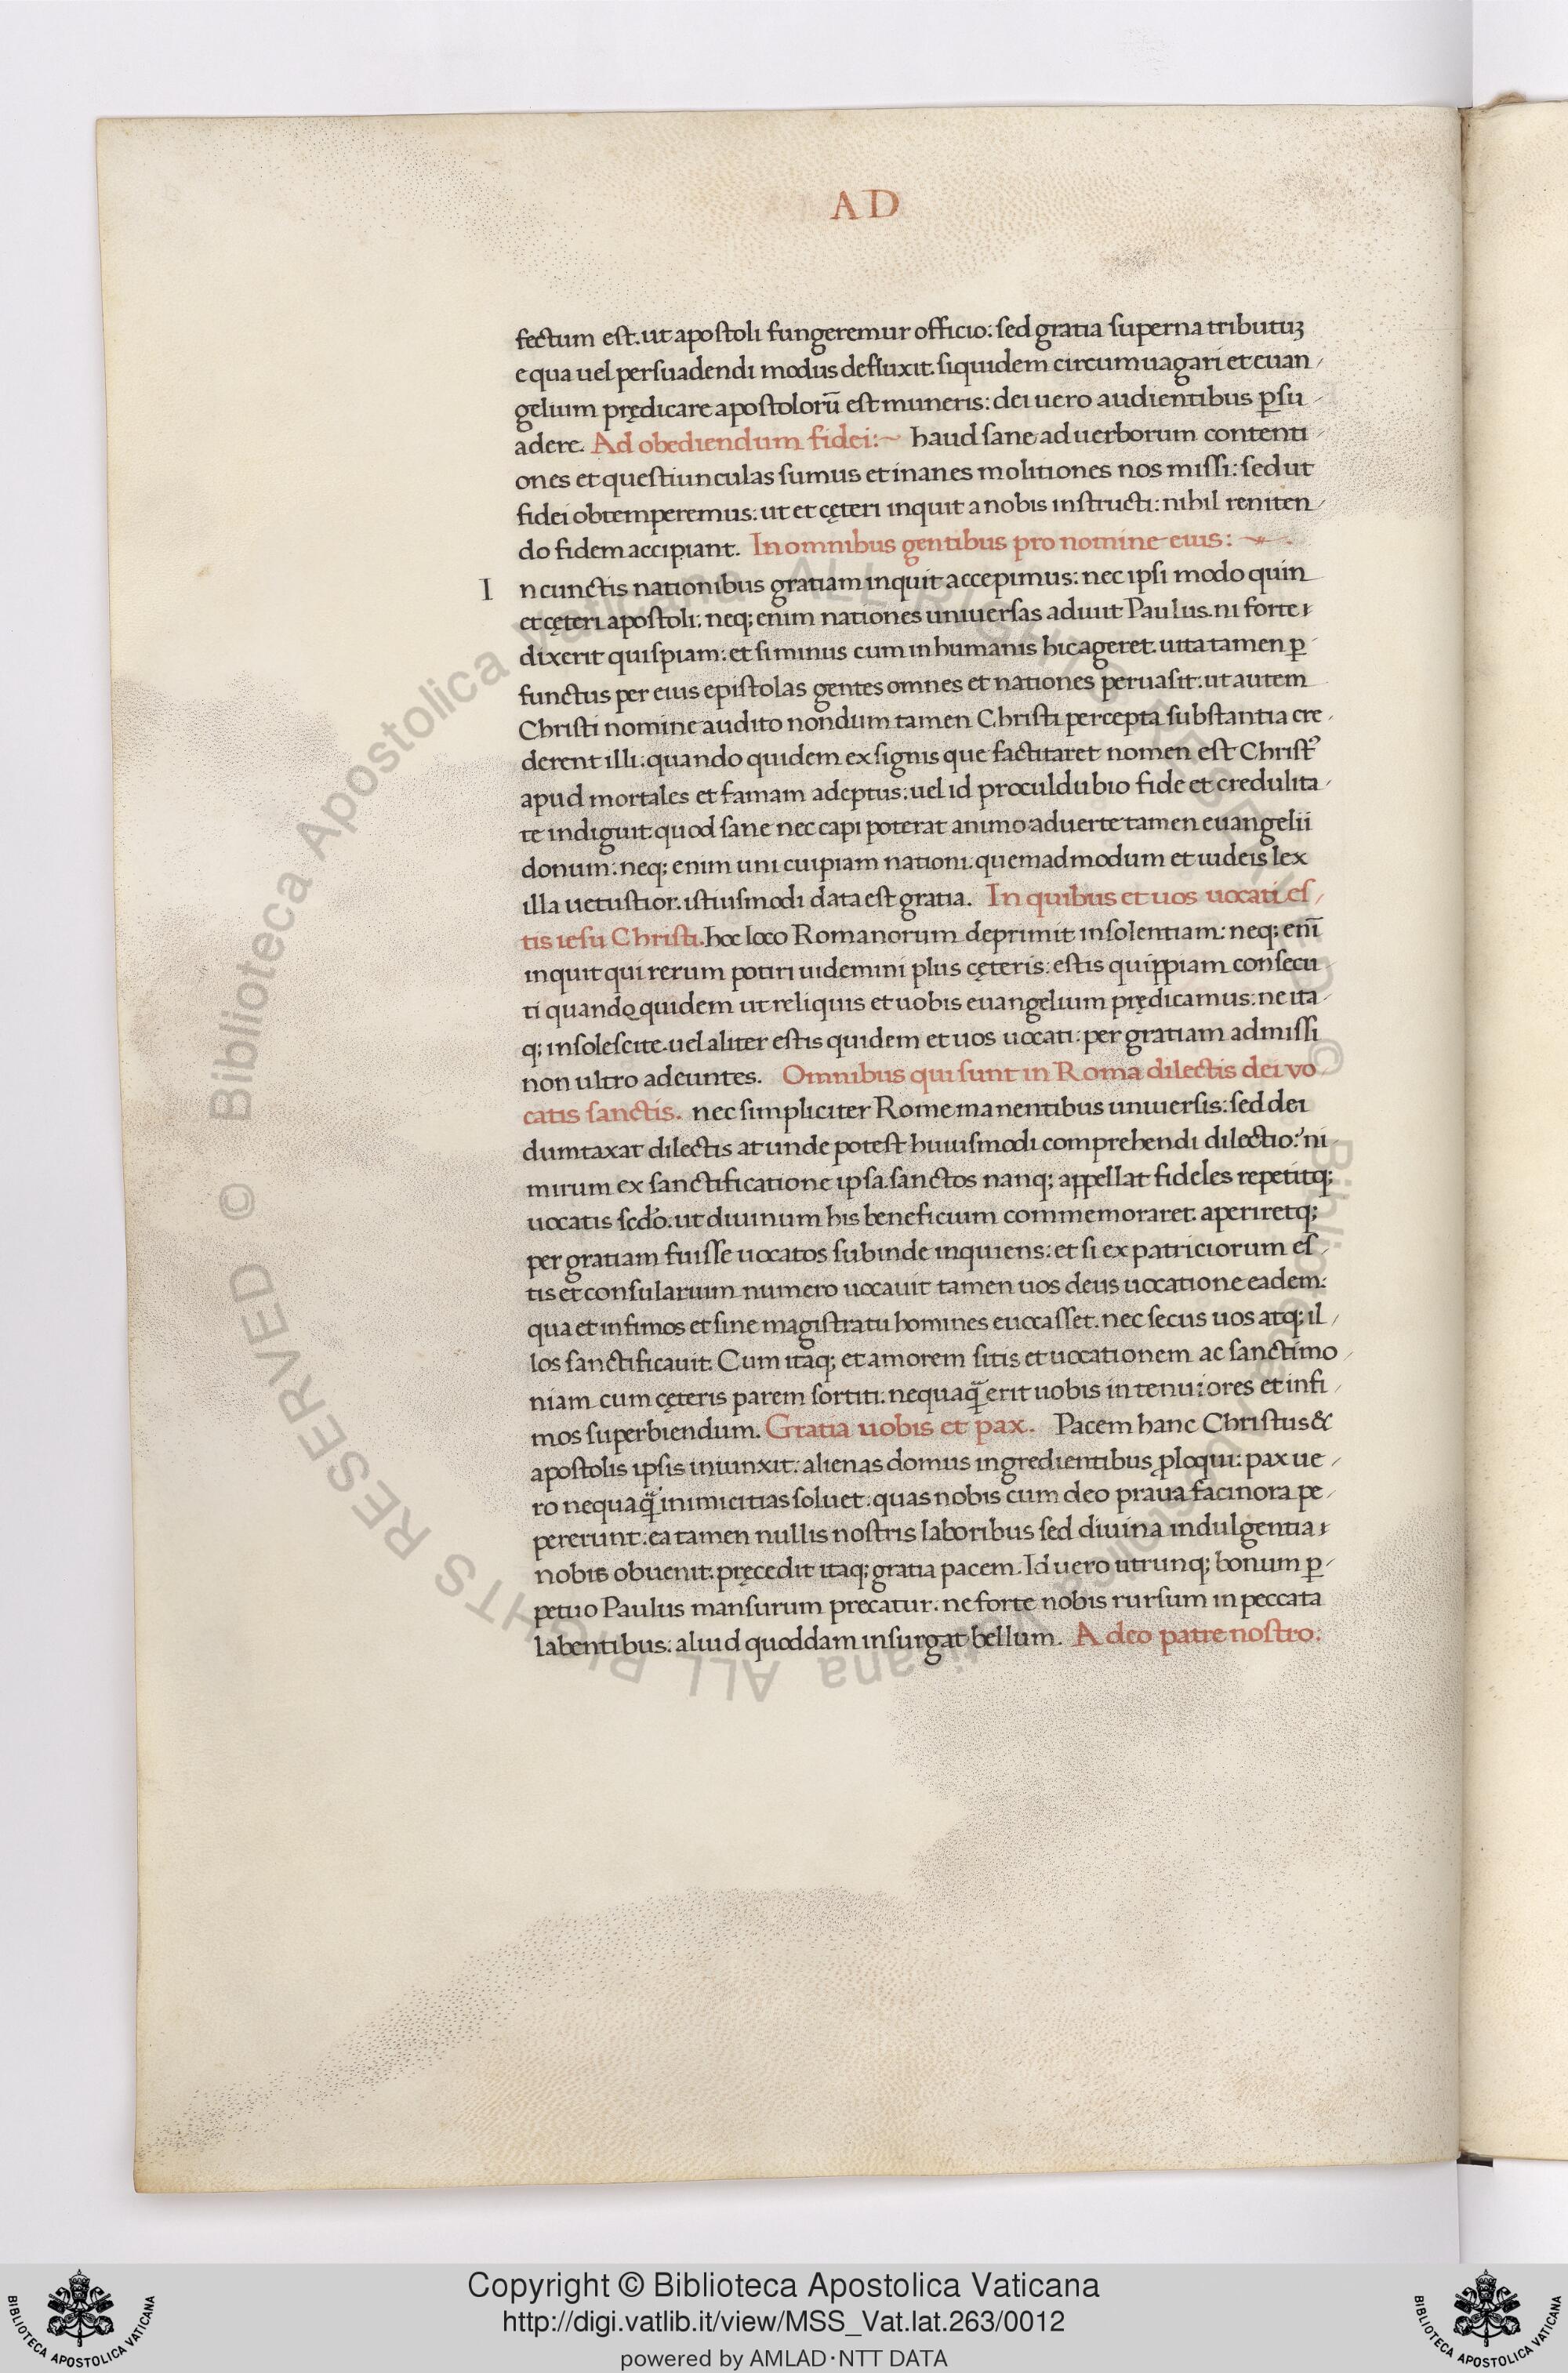 AD
fectum est. ut apostoli fungeremur officio: sed gratia superna tributuꝫ
e qua uel persuadendi modus defluxit. siquidem circumuagari et euan
gelium prędicare apostolorū est muneris: dei uero audientibus ꝑsu
adere. Ad obediendum fidei:~ haud sane ad uerborum contenti
ones et questiunculas sumus et inanes molitiones nos missi: sed ut
fidei obtemperemus: ut et cęteri inquit a nobis instructi: nihil reniten
do fidem accipiant. In omnibus gentibus pro nomine eius:
In cunctis nationibus gratiam inquit accepimus: nec ipsi modo quin
et cęteri apostoli: neq; enim nationes uniuersas adiuit Paulus. ni forte
dixerit quispiam: et si minus cum in humanis hic ageret. uita tamen ꝑ
functus per eius epistolas gentes omnes et nationes peruasit: ut autem
Christi nomine audito nondum tamen Christi percepta substantia cre
derent illi: quando quidem ex signis que factitaret nomen est Christꝰ
apud mortales et famam adeptus: uel id proculdubio fide et credulita
te indiguit: quod sane nec capi poterat animo: aduerte tamen euangelii
donum: neq; enim uni cuipiam nationi. quemadmodum et iudeis lex
illa uetustior. istiusmodi data est gratia. In quibus et uos uocati es
tis iesu Christi. hoc loco Romanorum deprimit insolentiam: neq; enī
inquit qui rerum potiri uidemini plus cęteris: estis quippiam consecu
ti quando quidem ut reliquis et uobis euangelium prędicamus: ne ita
q; insolescite. uel aliter estis quidem et uos uocati: per gratiam admissi
non ultro adeuntes. Omnibus qui sunt in Roma dilectis dei vo
catis sanctis. nec simpliciter Rome manentibus uniuersis: sed dei
dumtaxat dilectis at unde potest huiusmodi comprehendi dilectio? ni
mirum ex sanctificatione ipsa. sanctos nanq; appellat fideles repetitq;
uocatis sedo. ut diuinum his beneficium commemoraret. aperiretq;
per gratiam fuisse uocatos subinde inquiens: et si ex patriciorum es
tis et consularium numero uocauit tamen uos deus uocatione eadem:
qua et infimos et sine magistratu homines euocasset. nec secus uos atq; il
los sanctificauit. Cum itaq; et amorem sitis et uocationem ac sanctimo
niam cum cęteris parem sortiti: nequaq̄ erit uobis in tenuiores et infi
mos superbiendum. Gratia uobis et pax. Pacem hanc Christus &
apostolis ipsis iniunxit: alienas domus ingredientibus ꝓloqui: pax ue
ro nequaq̄ inimicitias soluet: quas nobis cum deo praua facinora pe
pererunt: ea tamen nullis nostris laboribus sed diuina indulgentia
nobis obuenit: pręcedit itaq; gratia pacem. Id uero utrunq; bonum ꝑ
petuo Paulus mansurum precatur: ne forte nobis rursum in peccata
labentibus: aliud quoddam insurgat bellum. A deo patre nostro:
Copyright © Biblioteca Apostolica Vaticana
http://digi.vatlib.it/view/MSS_Vat.lat.263/0012
powered by AMLAD·NTT DATA
BIBLIOTECA APOSTOLICA VATICANA
BIBLIOTECA APOSTOLICA VATICANA
© Biblioteca Apostolica Vaticana ALL RIGHTS RESERVED
© Biblioteca Apostolica Vaticana ALL RIGHTS RESERVED